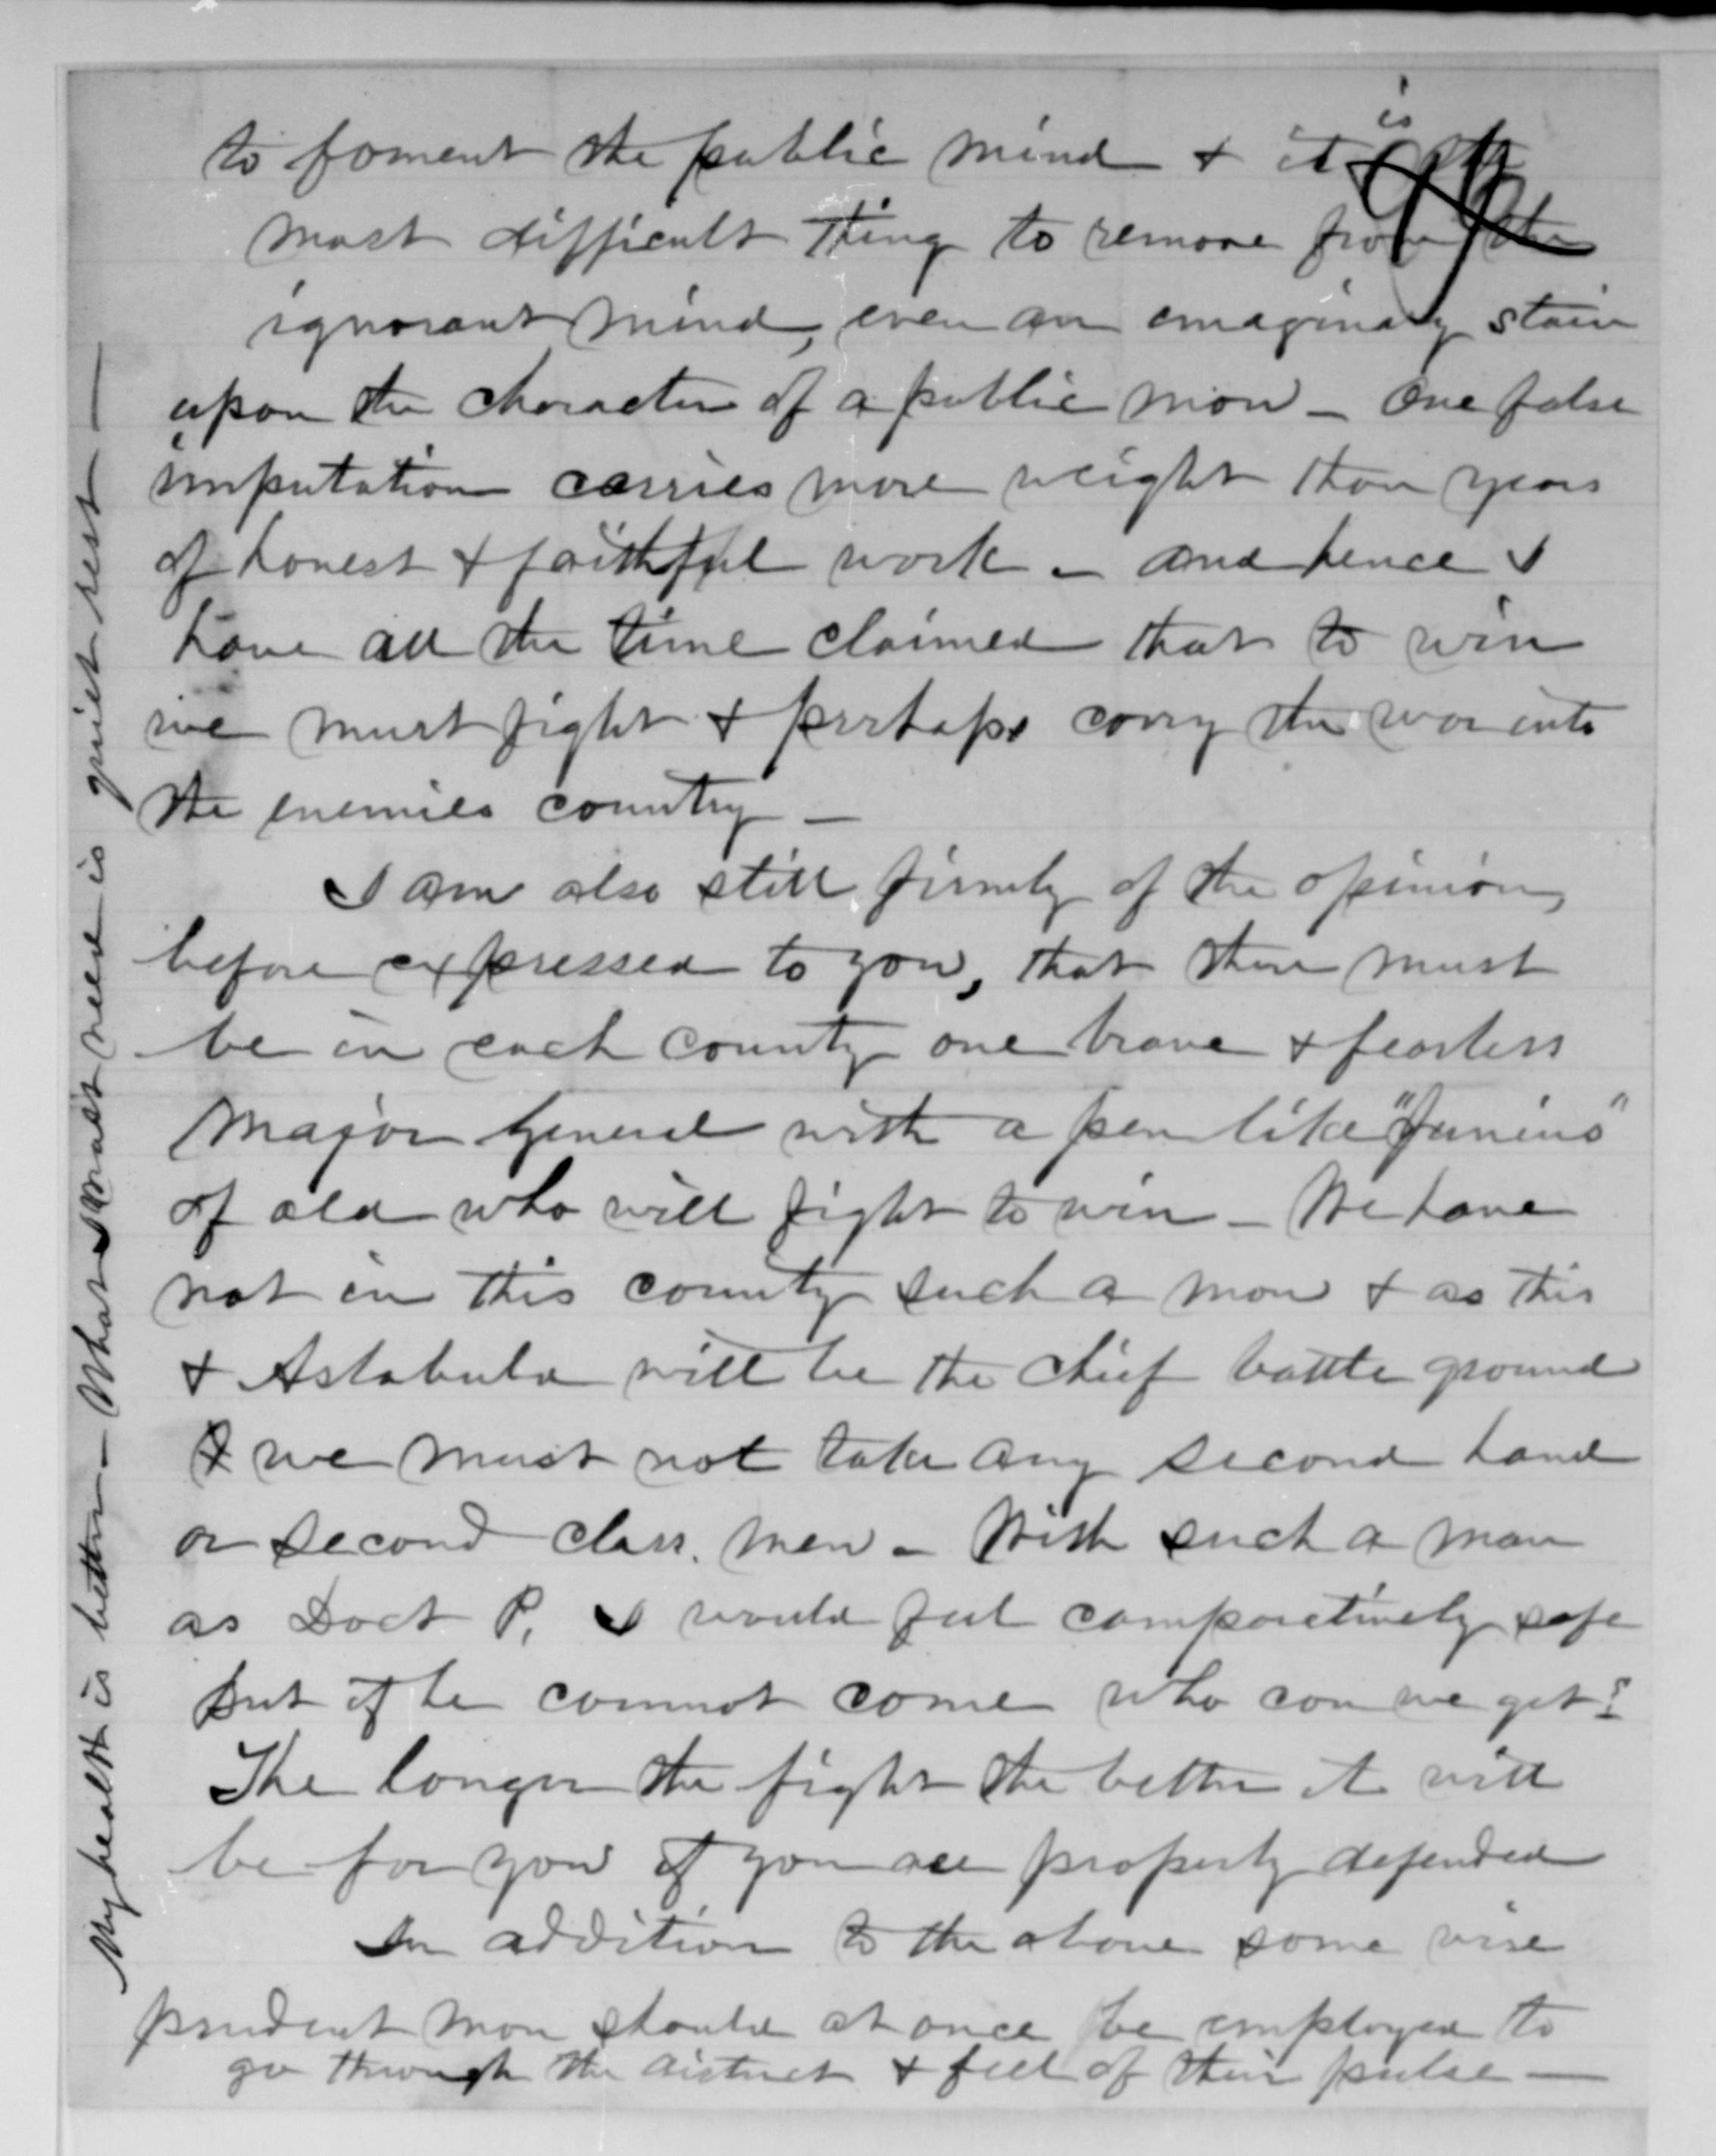 to foment the public mind & it is
most difficult thing to remove from the
ignorant mind, even an emaginary stain
upon the character of a public man - One false
imputation carries more weight than years
of honest & faithful work - and hence I
have all the time claimed that to win
we must fight & perhaps carry the war into
the enemies country -
I am also still firmly of the opinion,
before expressed to you, that there must
be in each county one brave & fearless
Major General with a pen like "Junius"
of old who will fight to win - We have
not in this county such a man & as this
& Astabula will be the chief battle ground
& we must not take any second hand
or second class. men - With such a man
as Doct P. I would feel comparitively safe
but if he cannot come who can we get?
The longer the fight the better it will
be for you if you are properly defended
In addition to the above some wise
prudent man should at once be employed to
go through the district & feel of their pulse -
My health is better - What I most need is quiet rest -